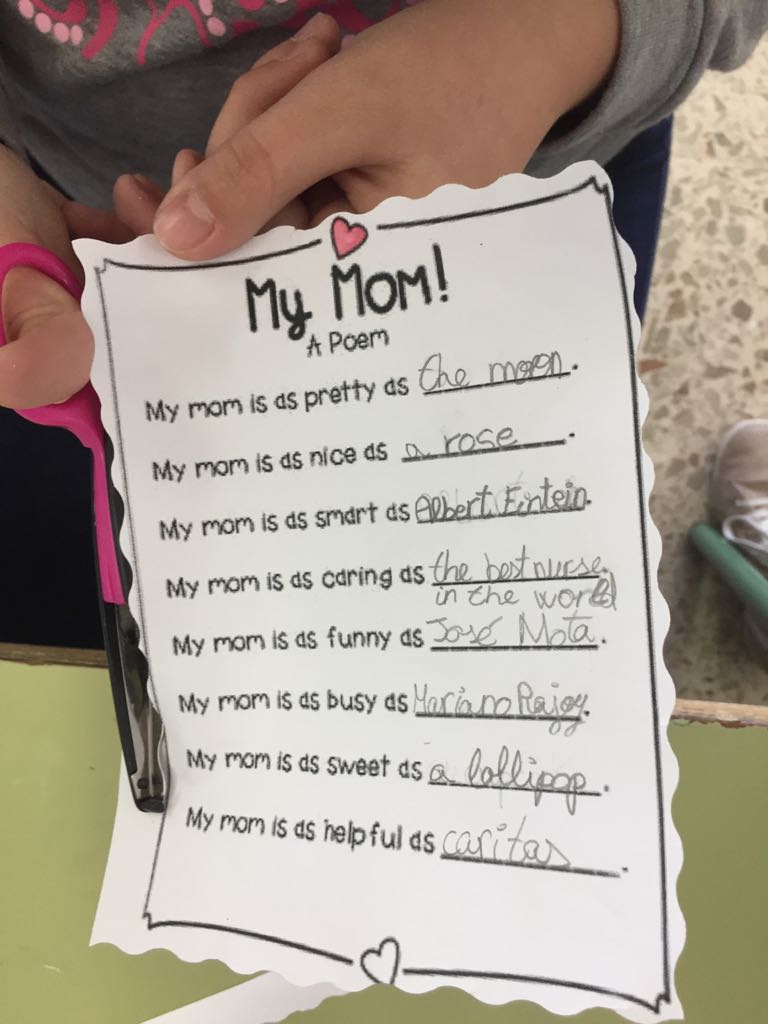 My Mom!
A Poem
My mom is as pretty as the moon.
My mom is as nice as a rose.
My mom is as smart as Albert Eintein.
My mom is as caring as the best nurse.
in the world
My mom is as funny as José Mota.
My mom is as busy as Mariano Rajoy.
My mom is as sweet as a lollipop.
My mom is as helpful as caritas.